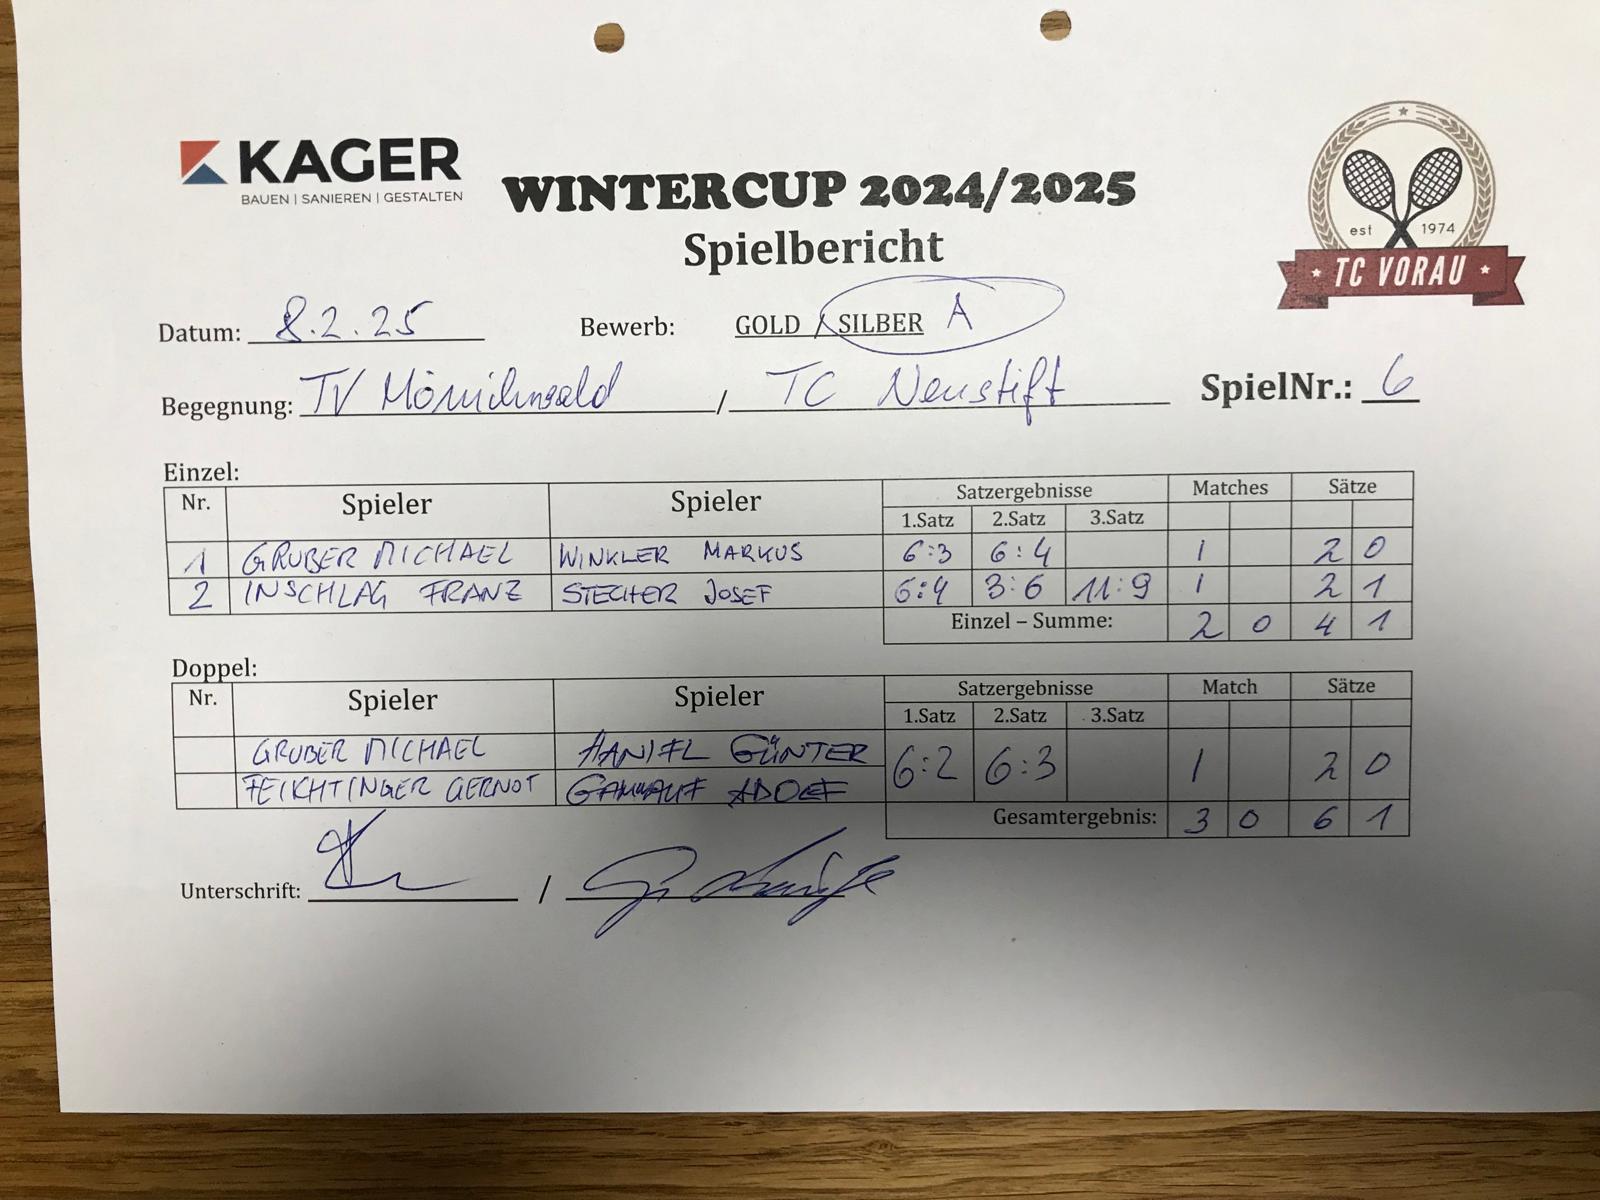 KAGER
BAUEN | SANIEREN | GESTALTEN
WINTERCUP 2024/2025
Spielbericht
est 1974
TC VORAU
Datum: 8.2.25 Bewerb: GOLD / SILBER A
Begegnung: TV Mönichwald / TC Neustift SpielNr.: 6
Einzel:
Nr. Spieler Spieler Satzergebnisse Matches Sätze
1.Satz 2.Satz 3.Satz
1 GRUBER MICHAEL WINKLER MARKUS 6:3 6:4 1 2 0
2 INSCHLAG FRANZ STECHER JOSEF 6:4 3:6 11:9 1 2 1
Einzel – Summe: 2 0 4 1
Doppel:
Nr. Spieler Spieler Satzergebnisse Match Sätze
1.Satz 2.Satz 3.Satz
GRUBER MICHAEL HANIFL GÜNTER 6:2 6:3 1 2 0
FEICHTINGER GERNOT
Gesamtergebnis: 3 0 6 1
Unterschrift: /